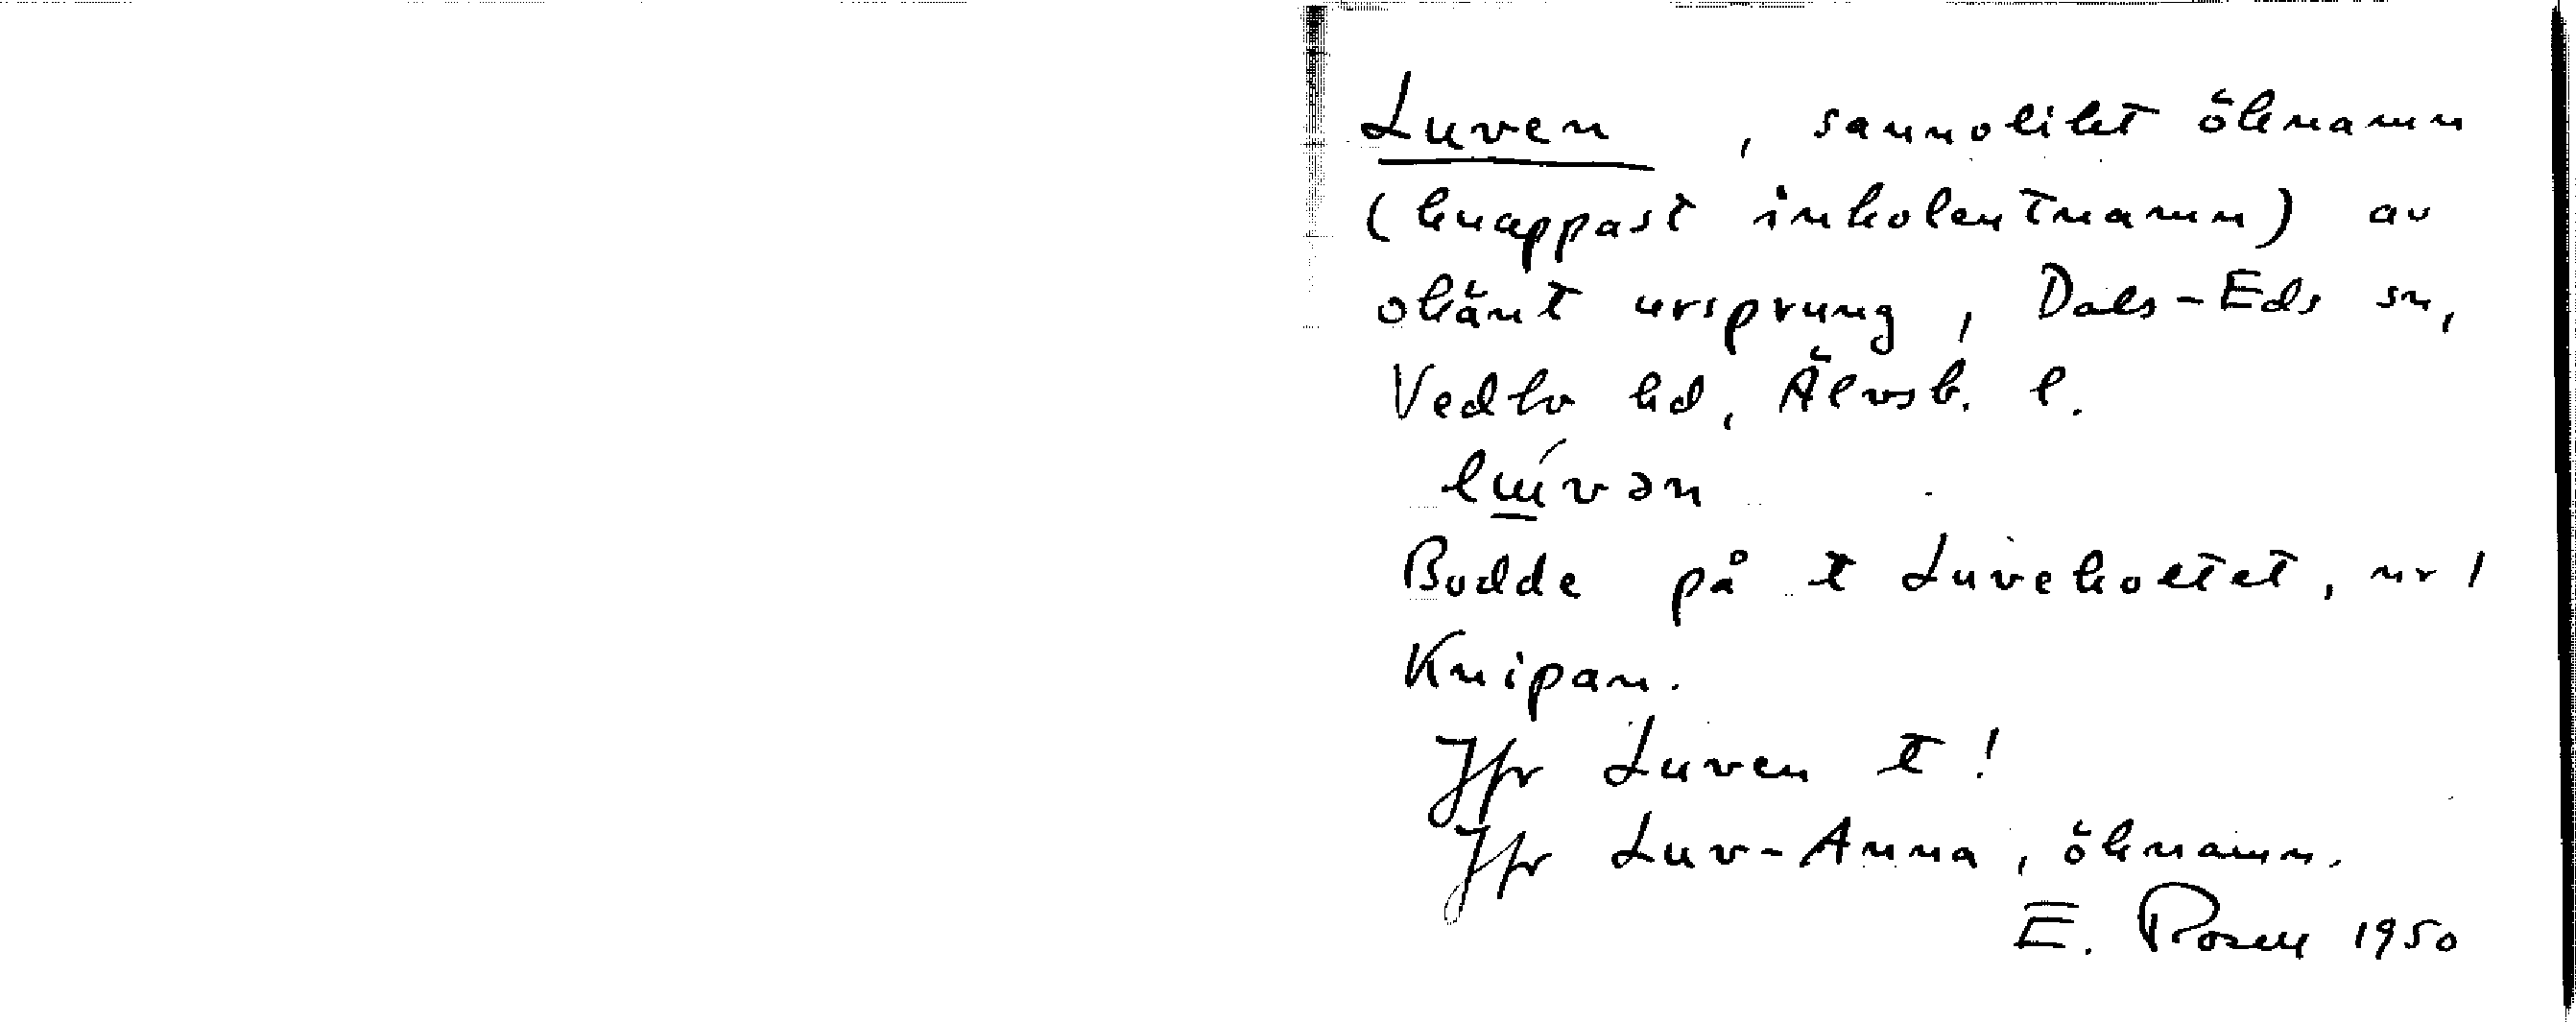 Luven, sannolikt öknamn
(knappast inkolentnamn) av
okänt ursprung, Dals-Eds sn,
Vedbo hd, Älvsb. l.
lú̲vən
Bodde på t Luvekoltet, nr 1
Knipan.
Jfr Luven t!
Jfr Luv-Anna, öknamn.
E. Rosell 1950